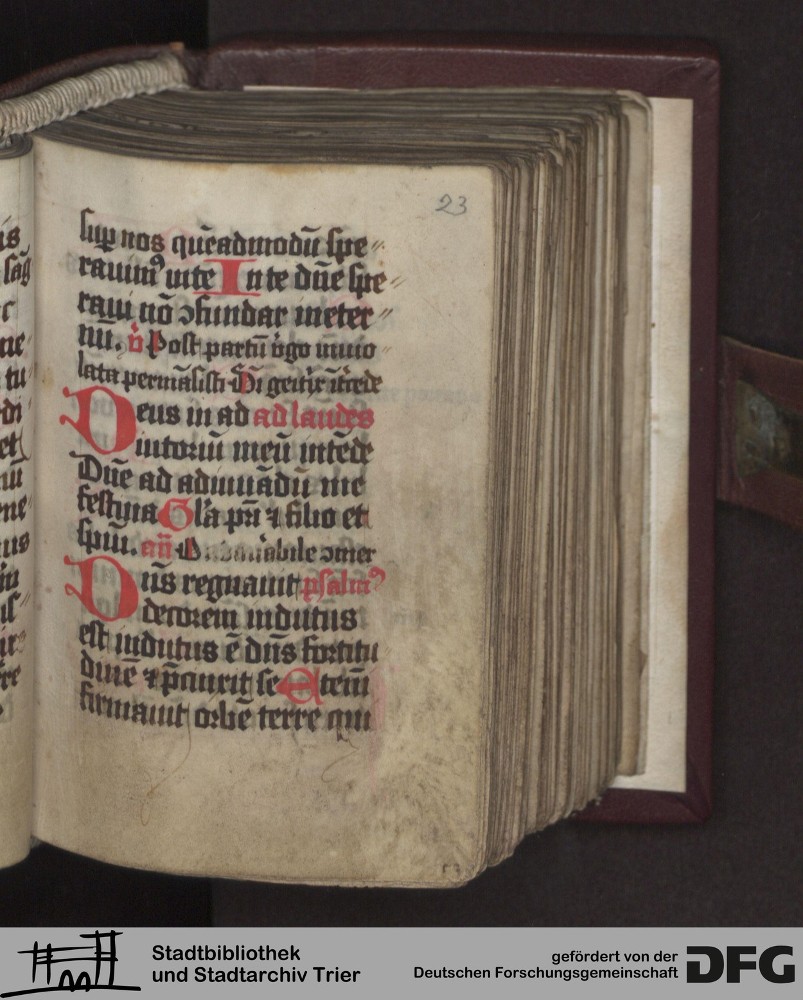 23
sup nos quēadmodū spe
rauim⁹ inte In te dn̄e spe
raui nō ↄfundar ineter
nū. v̄ Post partū v̊go inuio
lata permāsisti Di genitx ītcede
Deus in ad ad laudes
iutoriū meū intēde
Dn̄e ad adiuuādū me
festina Gl̄a pr̄i ⁊ filio et
spiui. an̄
Dn̄s regnauit psalm⁹
decorem indutus
est indutus ē dn̄s fortitu
dinē ⁊ p̄cinxit se Eteni
firmauit orbē terre qui
Stadtbibliothek
und Stadtarchiv Trier
gefördert von der
Deutschen Forschungsgemeinschaft
DFG